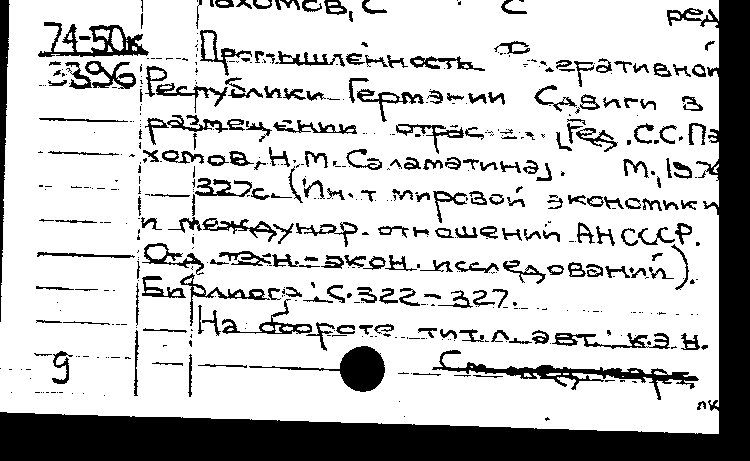 Пахомов, С С ред
74-50к Промышленность Ф еративной
3396 Республики Германии Сдвиги в
размещении отрас [Ред. С.С.Па
хомов, Н.М. Саламатина]. М., 197
327с. (Ин-т мировой экономики
и междунар. отношений АН СССР.
Отд. техн.-экон. исследований).
Библиогр: С. 322-327.
На обороте тит.л. авт.: к.э.н.
9 См. след. карт.